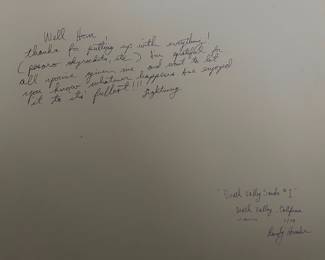 Well Hon
thanks for putting up with everything!
( skyrockets, etc.) I'm grateful for
all you've given me and want to let
you know whatever happens I've enjoyed
it to its' fullest!!! Lightning
"Death Valley # 1"
Death Valley, California